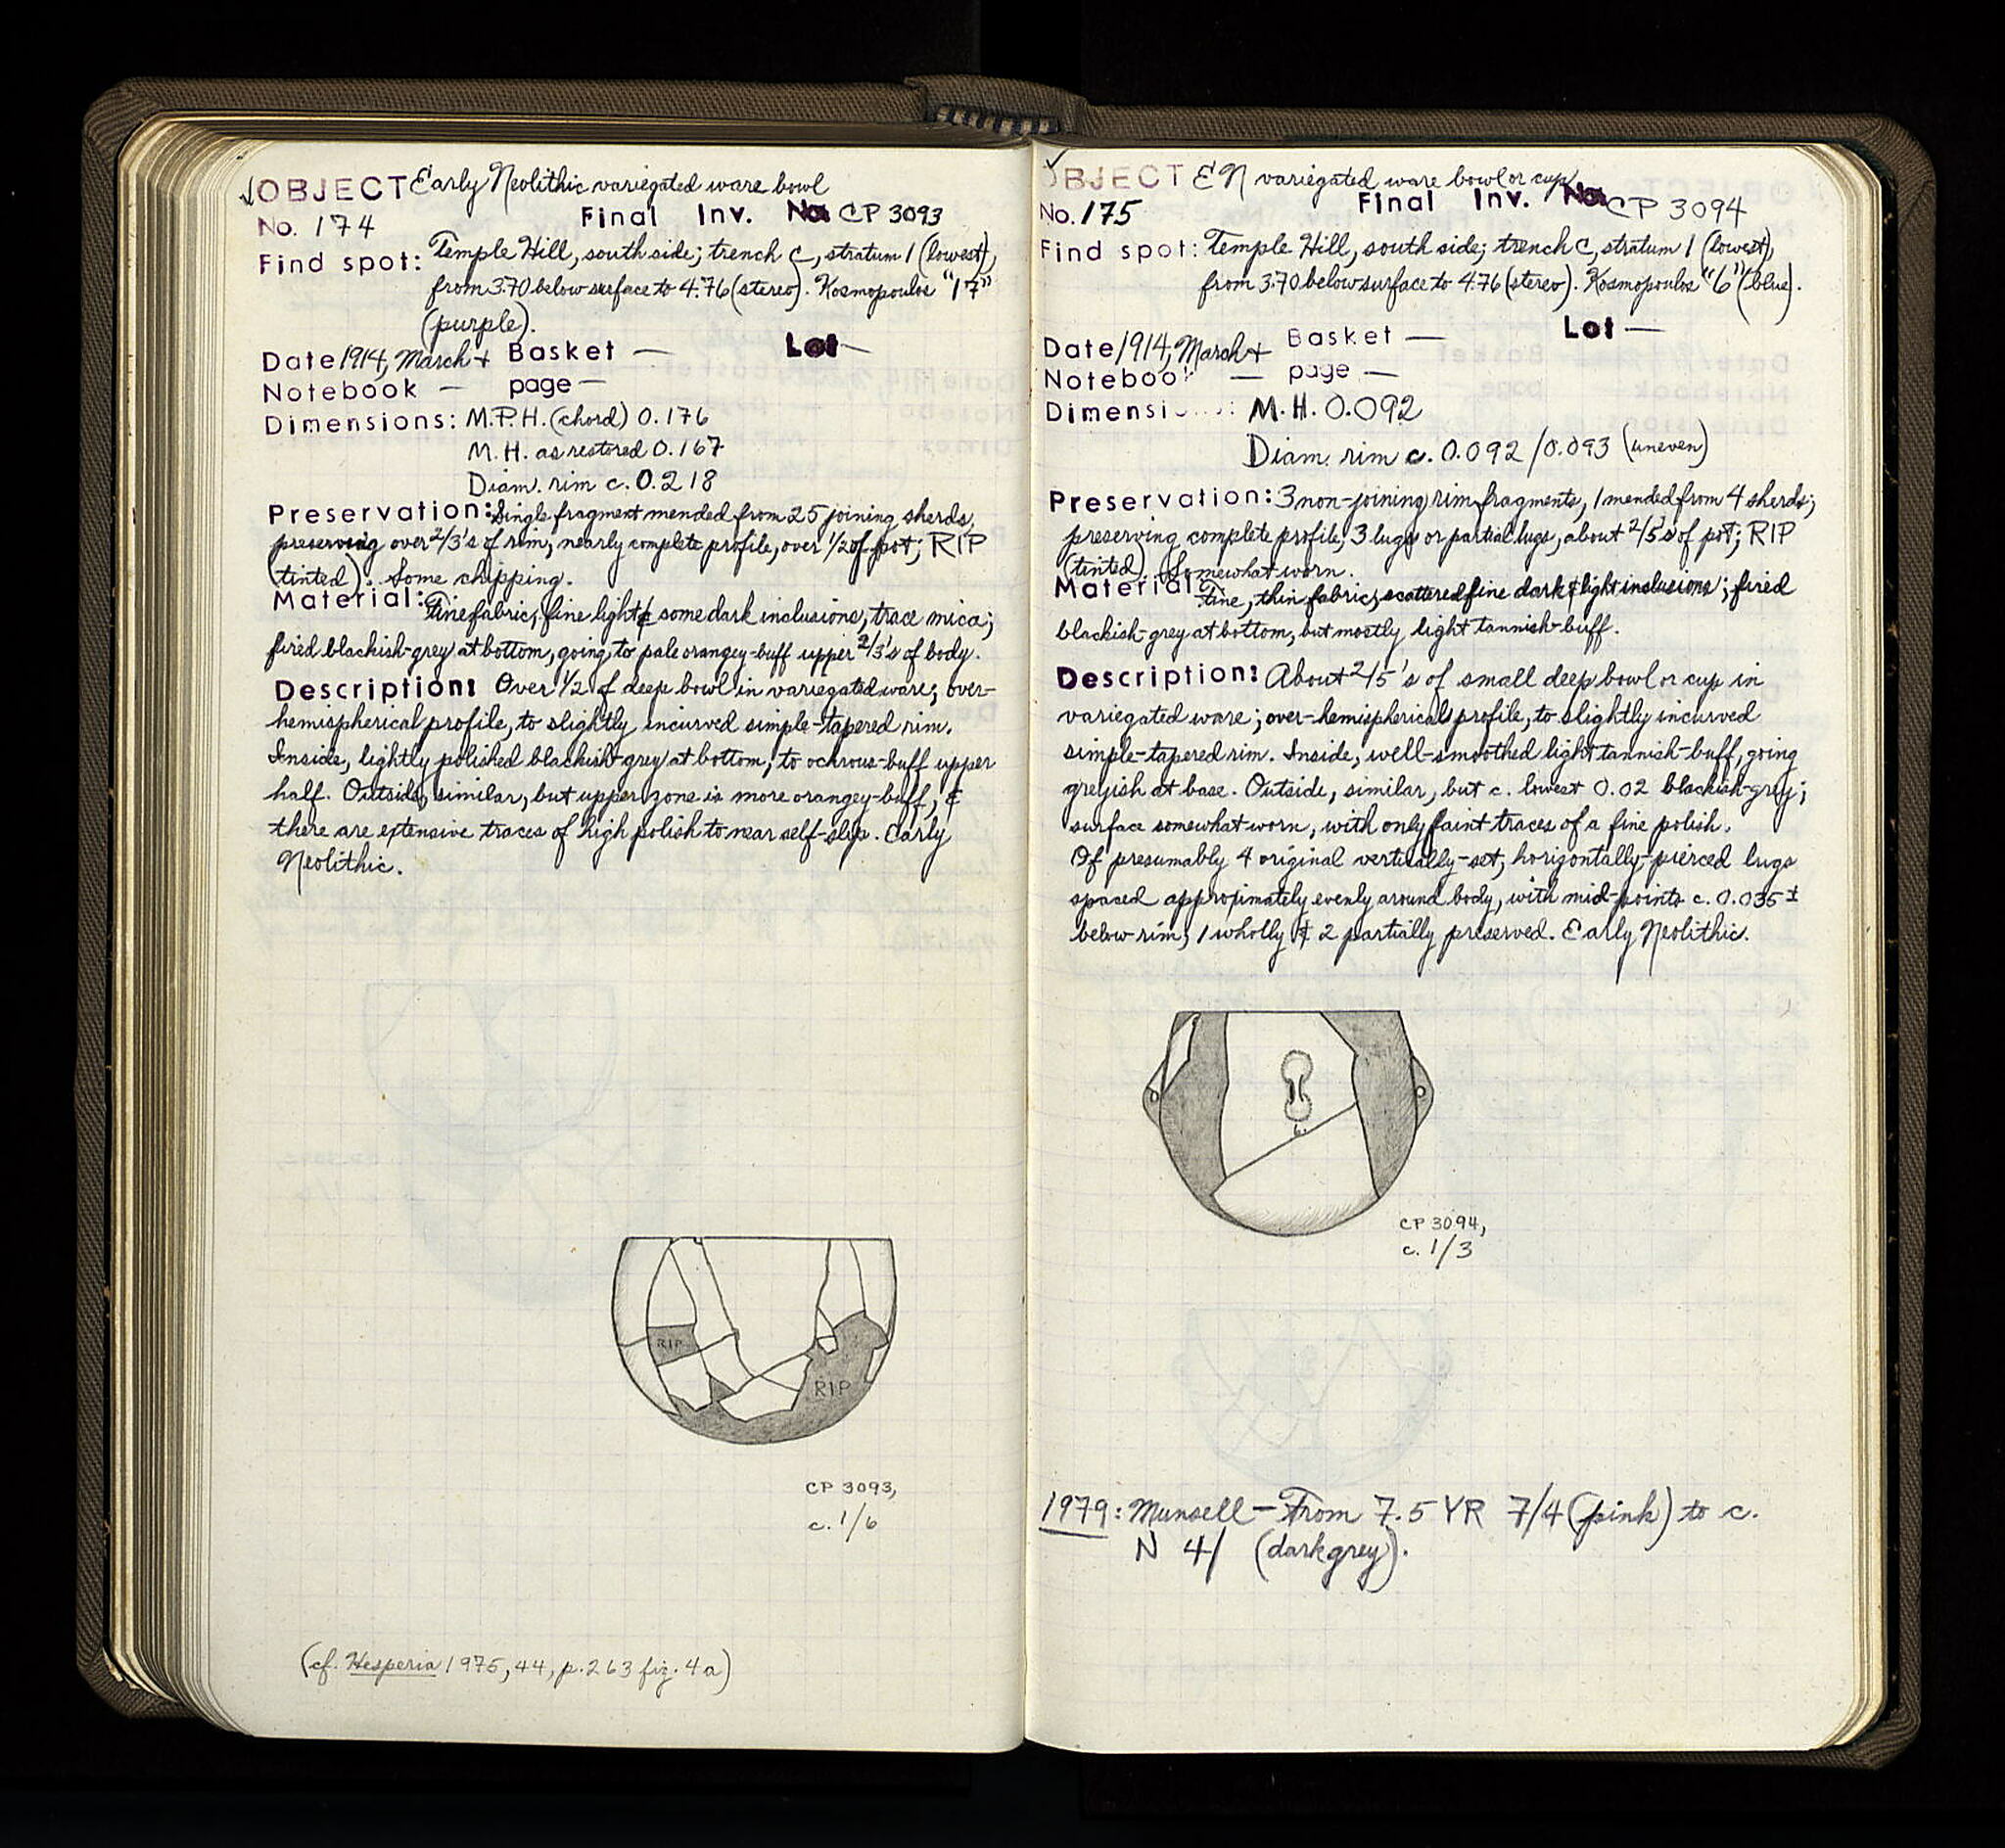 ✓OBJECT Early Neolithic variegated ware bowl
No. 174 Final Inv. No CP 3093
Find spot: Temple Hill, south side; trench C, stratum 1 (lowest),
from 3.70 below surface to 4.76 (stereo). Kosmopoulos "17"
(purple).
Date 1914, March + Basket — Lot —
Notebook — page —
Dimensions: M.P.H. (chord) 0.176
M.H. as restored 0.167
Diam. rim c. 0.218
Preservation: Single fragment mended from 25 joining sherds,
preserving over 2/3's of rim, nearly complete profile, over 1/2 of pot; RIP
(tinted). Some chipping.
Material: Fine fabric, fine light & some dark inclusions, trace mica;
fired blackish-grey at bottom, going to pale orangey-buff upper 2/3's of body.
Description: Over 1/2 of deep bowl in variegated ware; over-
hemispherical profile, to slightly incurved simple-tapered rim.
Inside, lightly polished blackish-grey at bottom, to ochrous-buff upper
half. Outside, similar, but upper zone is more orangey-buff, &
there are extensive traces of high polish to near self-slip. Early
Neolithic.
RIP
RIP
CP 3093,
c. 1/6
(cf. Hesperia 1975, 44, p. 263 fig. 4a)
✓OBJECT EN variegated ware bowl or cup
No. 175 Final Inv. No CP 3094
Find spot: Temple Hill, south side; trench C, stratum 1 (lowest),
from 3.70 below surface to 4.76 (stereo). Kosmopoulos "6" (blue).
Date 1914, March + Basket — Lot —
Notebook — page —
Dimensions: M.H. 0.092
Diam. rim c. 0.092/0.093 (uneven)
Preservation: 3 non-joining rim fragments, 1 mended from 4 sherds;
preserving complete profile, 3 lugs or partial lugs, about 2/5's of pot; RIP
(tinted). Somewhat worn.
Material: Fine, thin fabric, scattered fine dark & light inclusions; fired
blackish-grey at bottom, but mostly light tannish-buff.
Description: About 2/5's of small deep bowl or cup in
variegated ware; over-hemispherical profile, to slightly incurved
simple-tapered rim. Inside, well-smoothed light tannish-buff, going
greyish at base. Outside, similar, but c. lowest 0.02 blackish-grey;
surface somewhat worn, with only faint traces of a fine polish.
Of presumably 4 original vertically-set, horizontally-pierced lugs
spaced approximately evenly around body, with mid-points c. 0.035±
below rim, 1 wholly & 2 partially preserved. Early Neolithic.
6.
CP 3094,
c. 1/3
1979: Munsell — From 7.5 YR 7/4 (pink) to c.
N 4/ (dark grey).